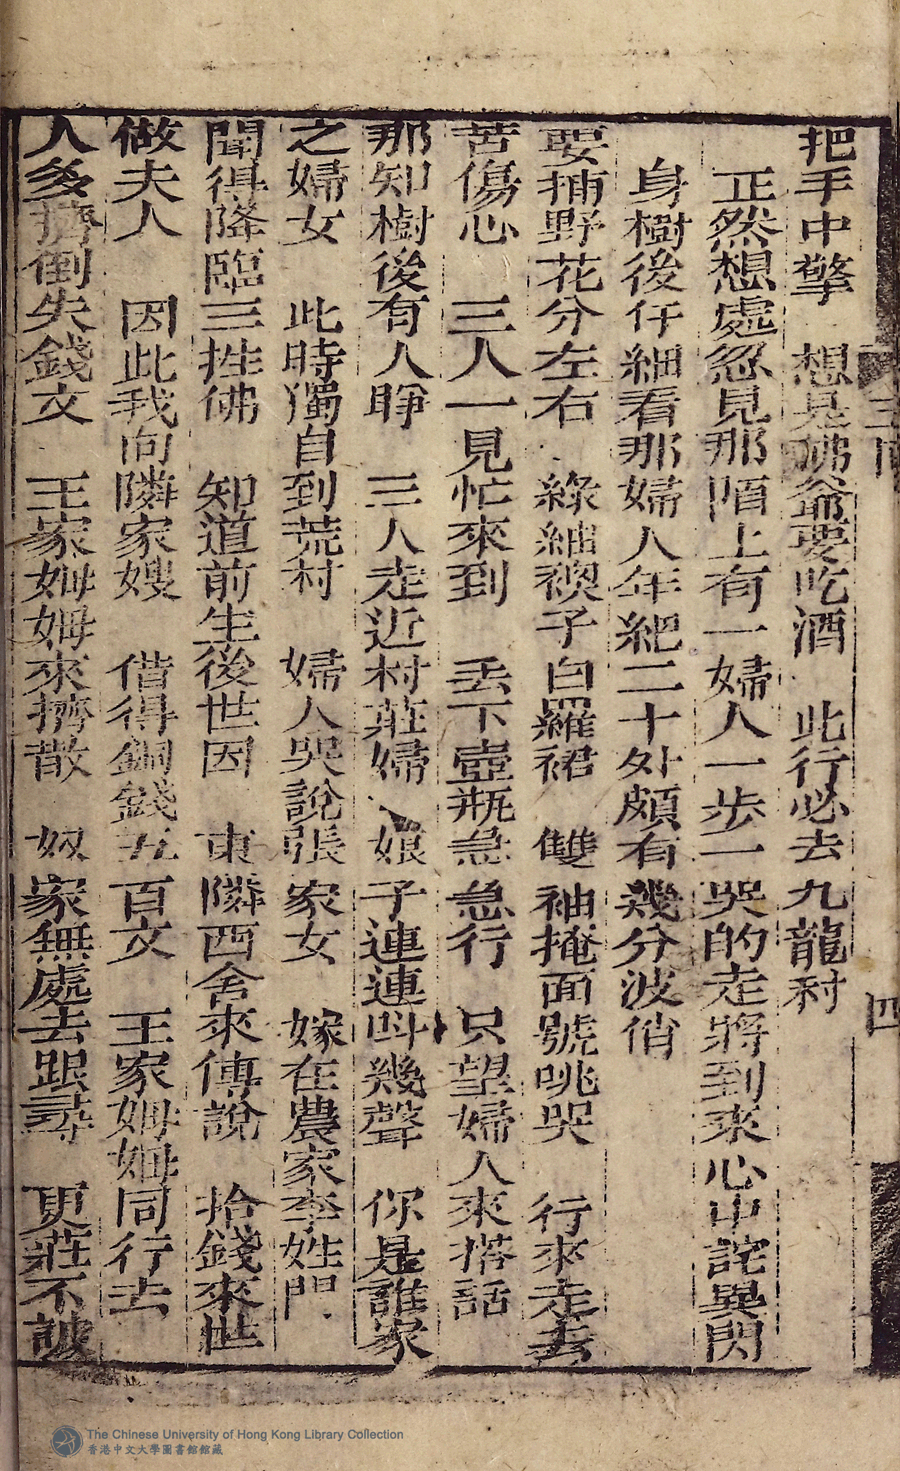 把手中擎　想是佛爺要吃酒　此行必去九龍村
正然想處忽見那陌上有一婦人一步一哭的走將到來心中詫異閃
身樹後仔細看那婦人年紀二十外頗有幾分波俏
要摘野花分左右　綠紬襖子白羅裙　雙袖掩面號咷哭　行來走去
苦傷心　三人一見忙來到　丟下壺瓶急急行　只望婦人來搭話
那知樹後有人睜　三人走近村莊婦　娘子連連叫幾聲　你是誰家
之婦女　此時獨自到荒村　婦人哭說張家女　嫁在農家李姓門
聞得降臨三挂佛　知道前生後世因　東隣西舍來傳說　拾錢來世
做夫人　因此我向隣家嫂　借得銅錢五百文　王家姆姆同行去
人多擠倒失錢文　王家姆姆來擠散　奴家無處去跟尋　更莊不諕
四
The Chinese University of Hong Kong Library Collection
香港中文大學圖書館館藏